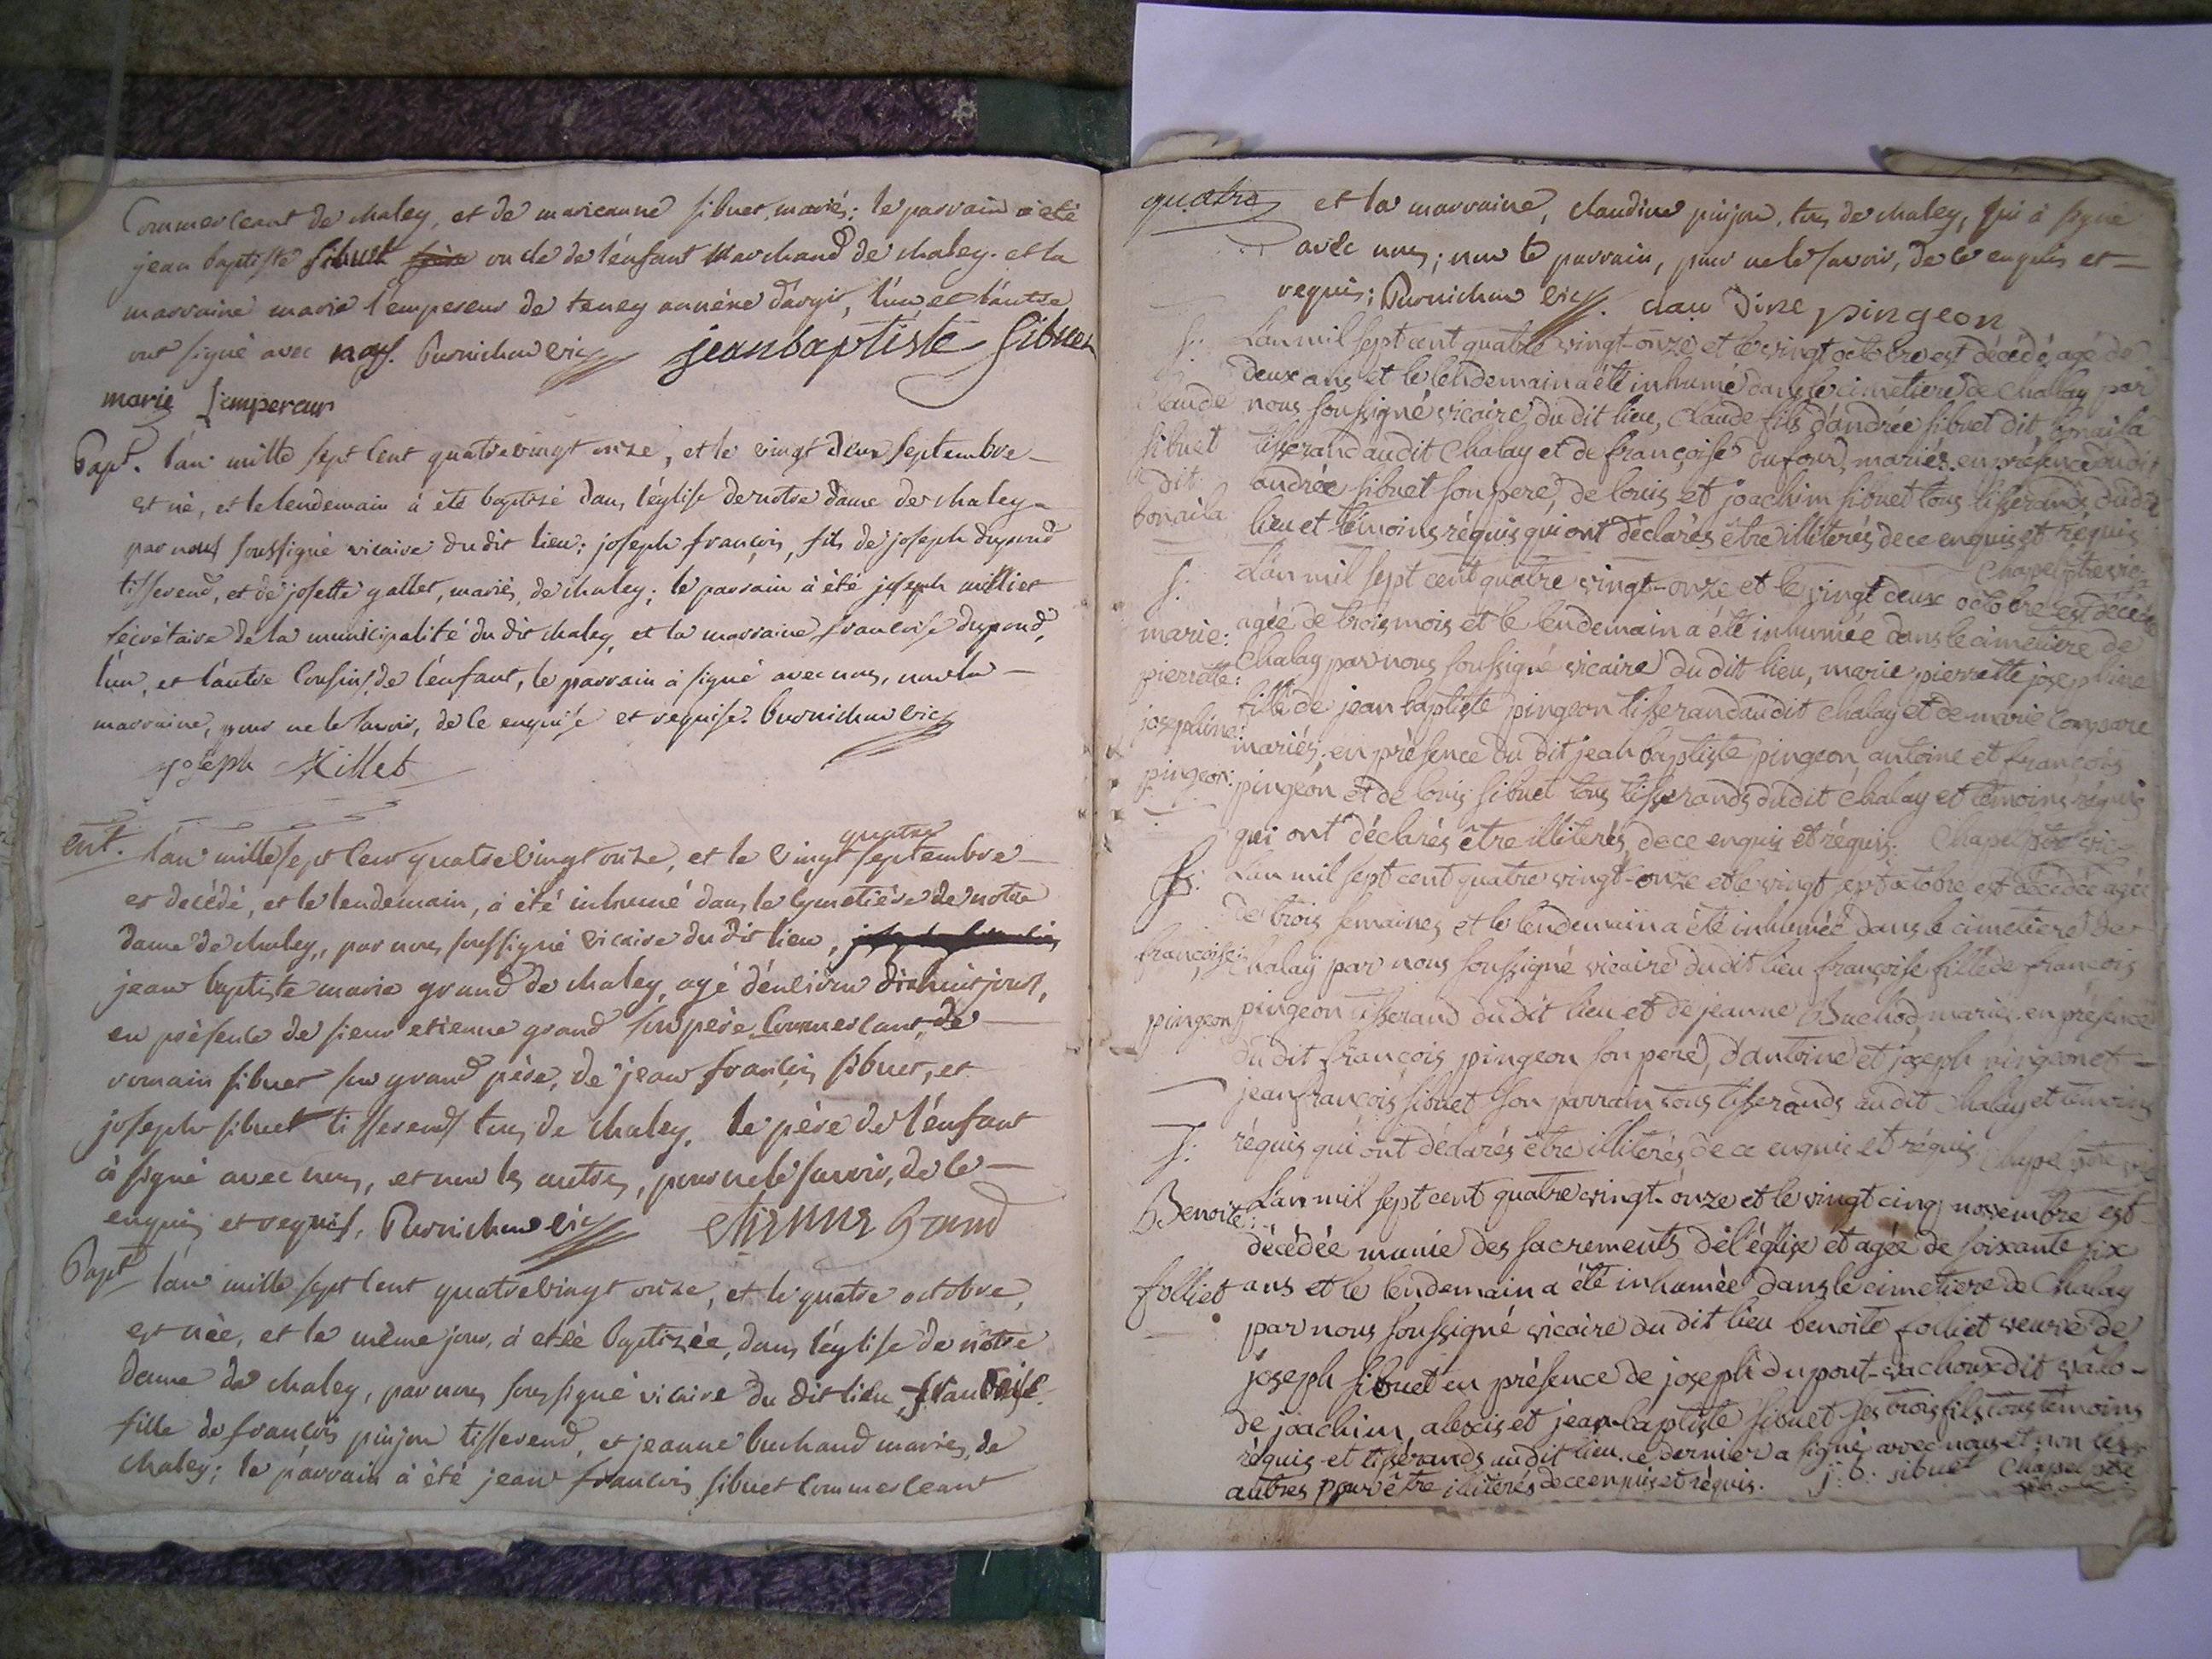 Commerceant de chaley, et de marieanne sibuet, mariés; le parrain a été
jean baptiste sibuet oncle de l'énfant Marchand de chaley. et la
marraine marie l'empereur de teney annéxe d'argis, l'un et l'autre
ont signé avec nous. Burnichon vic jean baptiste Sibuet
marie Lempereur
Bapt. l'an mille sept cent quatrevingt onze, et le vingt deux septembre
est né, et le lendemain à été baptisé dans l'église de notre dame de chaley
par nous soussigné vicaire du dit lieu; joseph françois, fils de joseph dupond
tisserend, et de josette gallet, mariés, de chaley; le parrain à été joseph milliet
sécrétaire de la municipalité du dit chaley, et la marraine françoise dupond,
l'un, et l'autre cousins de l'énfant, le parrain à signé avec nous, non la
marraine, pour ne le savoir, de le enquise et requise. burnichon vic
joseph Millet
ent. l'an mille sept cent quatrevingt onze, et le vingt quatre septembre
est décédé, et le lendemain, à été inhumé dans le cymetiére de notre
dame de chaley, par nous soussigné vicaire du dit lieu,
jean baptiste marie grand de chaley, agé d'énviron dixhuit jours,
en présence de sieur etienne grand son père, Commercant, de
romain sibuet son grand père, de jean françois sibuet, et
joseph sibuet tisserends tous de chaley. le père de l'énfant
à signé avec nous, et non les autres, pour ne le savoir, de le
enquis et requis. Burnichon vic etienne Grand
Bapt l'an mille sept cent quatrevingt onze, et le quatre octobre,
est née, et le même jour, à etéé baptizée, dans l'église de notre
dame de chaley, par nous soussigné vicaire du dit lieu, francoise
fille de françois pinjon tisserend, et jeanne buchand mariés, de
chaley; le parrain à été jean francois sibuet commerceant
quatre et la marraine, claudine pinjon, tous de chaley, qui à signé
avec nous; non le parrain, pour ne le savoir, de le enquis et
requis; Burnichon vic. clau dine pingeon
S: L'an mil sept cent quatre vingt-onze et le vingt octobre est décédé agé de
deux ans et le lendemain a été inhumé dans le cimetiere de Chalay par
Claude nous soussigné vicaire du dit lieu, Claude fils d'andrée sibuet dit bonaila
sibuet tisserand audit Chalay et de françoise dufour, mariés. en présence du dit
dit andrée sibuet son pere, de louis et joachim sibuet tous tisserands dudit
bonaila lieu et témoins réquis qui ont déclarés être illiterés de ce enquis et requis
Chapel ptre vic
S: L'an mil sept cent quatre vingt-onze et le vingt deux octobre est décédée
marie: agée de trois mois et le lendemain a été inhumée dans le cimetiere de
pierrette: Chalay par nous soussigné vicaire du dit lieu, marie pierrette josephine
josephine: fille de jean baptiste pingeon tisserand audit chalay et de marie Compare
pingeon: mariés. en présence du dit jean baptiste pingeon, antoine et françois
pingeon et de louis sibuet tous tisserands dudit chalay et témoins réquis
qui ont déclarés être illiterés de ce enquis et réquis. Chapel ptre vic
S: L'an mil sept cent quatre vingt-onze et le vingt sept octobre est décédée agée
de trois semaines et le lendemain a été inhumée dans le cimetiere de
françoise: chalay par nous soussigné vicaire du dit lieu françoise fille de françois
pingeon pingeon tisserand dudit lieu et de jeanne Buchod, mariés. en présence
du dit françois pingeon son peré, d'antoine et joseph pingeon et
jean françois sibuet son parrain tous tisserands audit chalay et témoins
réquis qui ont déclarés être illiterés de ce enquis et réquis. Chapel ptre vic
S:
Benoite: L'an mil sept cent quatre vingt-onze et le vingt cinq novembre est
décédée munie des sacrements de l'église et agée de soixante six
folliet ans et le lendemain a été inhumée dans le cimetiere de Chalay
par nous soussigné vicaire du dit lieu benoite folliet veuve de
joseph sibuet en présence de joseph dupont
de joachim, alexis et jean-baptiste sibuet ses trois fils tous témoins
réquis et tisserands audit lieu. ce dernier a signé avec nous et non les
autres pour être illiterés de ce enquis et réquis. j: b: sibuet Chapel ptre